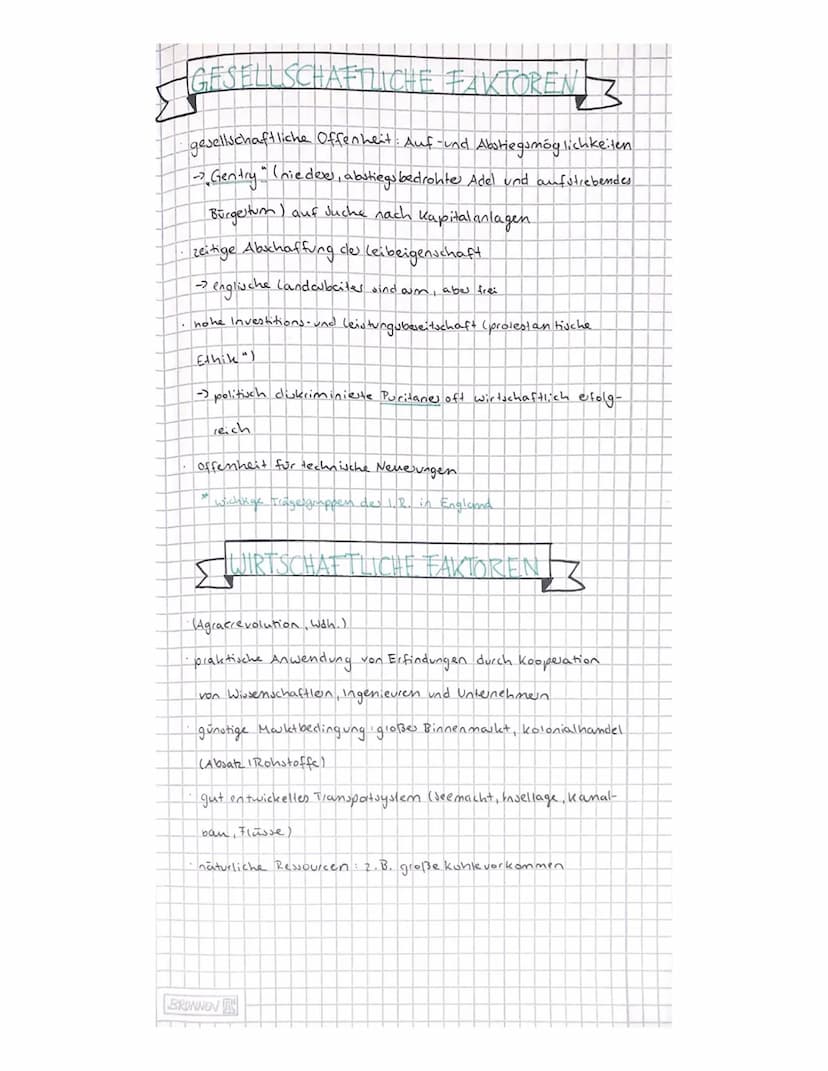 GESELLSCHAFTLICHE FAKTOREN
· gesellschaftliche Offenheit: Auf- und Abstiegsmöglichkeiten
→ „Gentry" (niederer, abstiegsbedrohter Adel und aufstrebendes
Bürgertum) auf Suche nach Kapitalanlagen
· zeitige Abschaffung der Leibeigenschaft
→ englische Landarbeiter sind arm, aber frei
· hohe Investitions- und Leistungsbereitschaft (protestantische
Ethik")
→ politisch diskriminierte Puritaner oft wirtschaftlich erfolg-
reich
· Offenheit für technische Neuerungen
* wichtige Trägergruppen der I.R. in England
WIRTSCHAFTLICHE FAKTOREN
· (Agrarrevolution, Wdh.)
· praktische Anwendung von Erfindungen durch Kooperation
von Wissenschaftlern, Ingenieuren und Unternehmern
· günstige Marktbedingung: großer Binnenmarkt, Kolonialhandel
(Absatz / Rohstoffe)
· gut entwickeltes Transportsystem (Seemacht, Insellage, Kanal-
bau, Flüsse)
· natürliche Ressourcen: z.B. große Kohlevorkommen
BRUNNEN